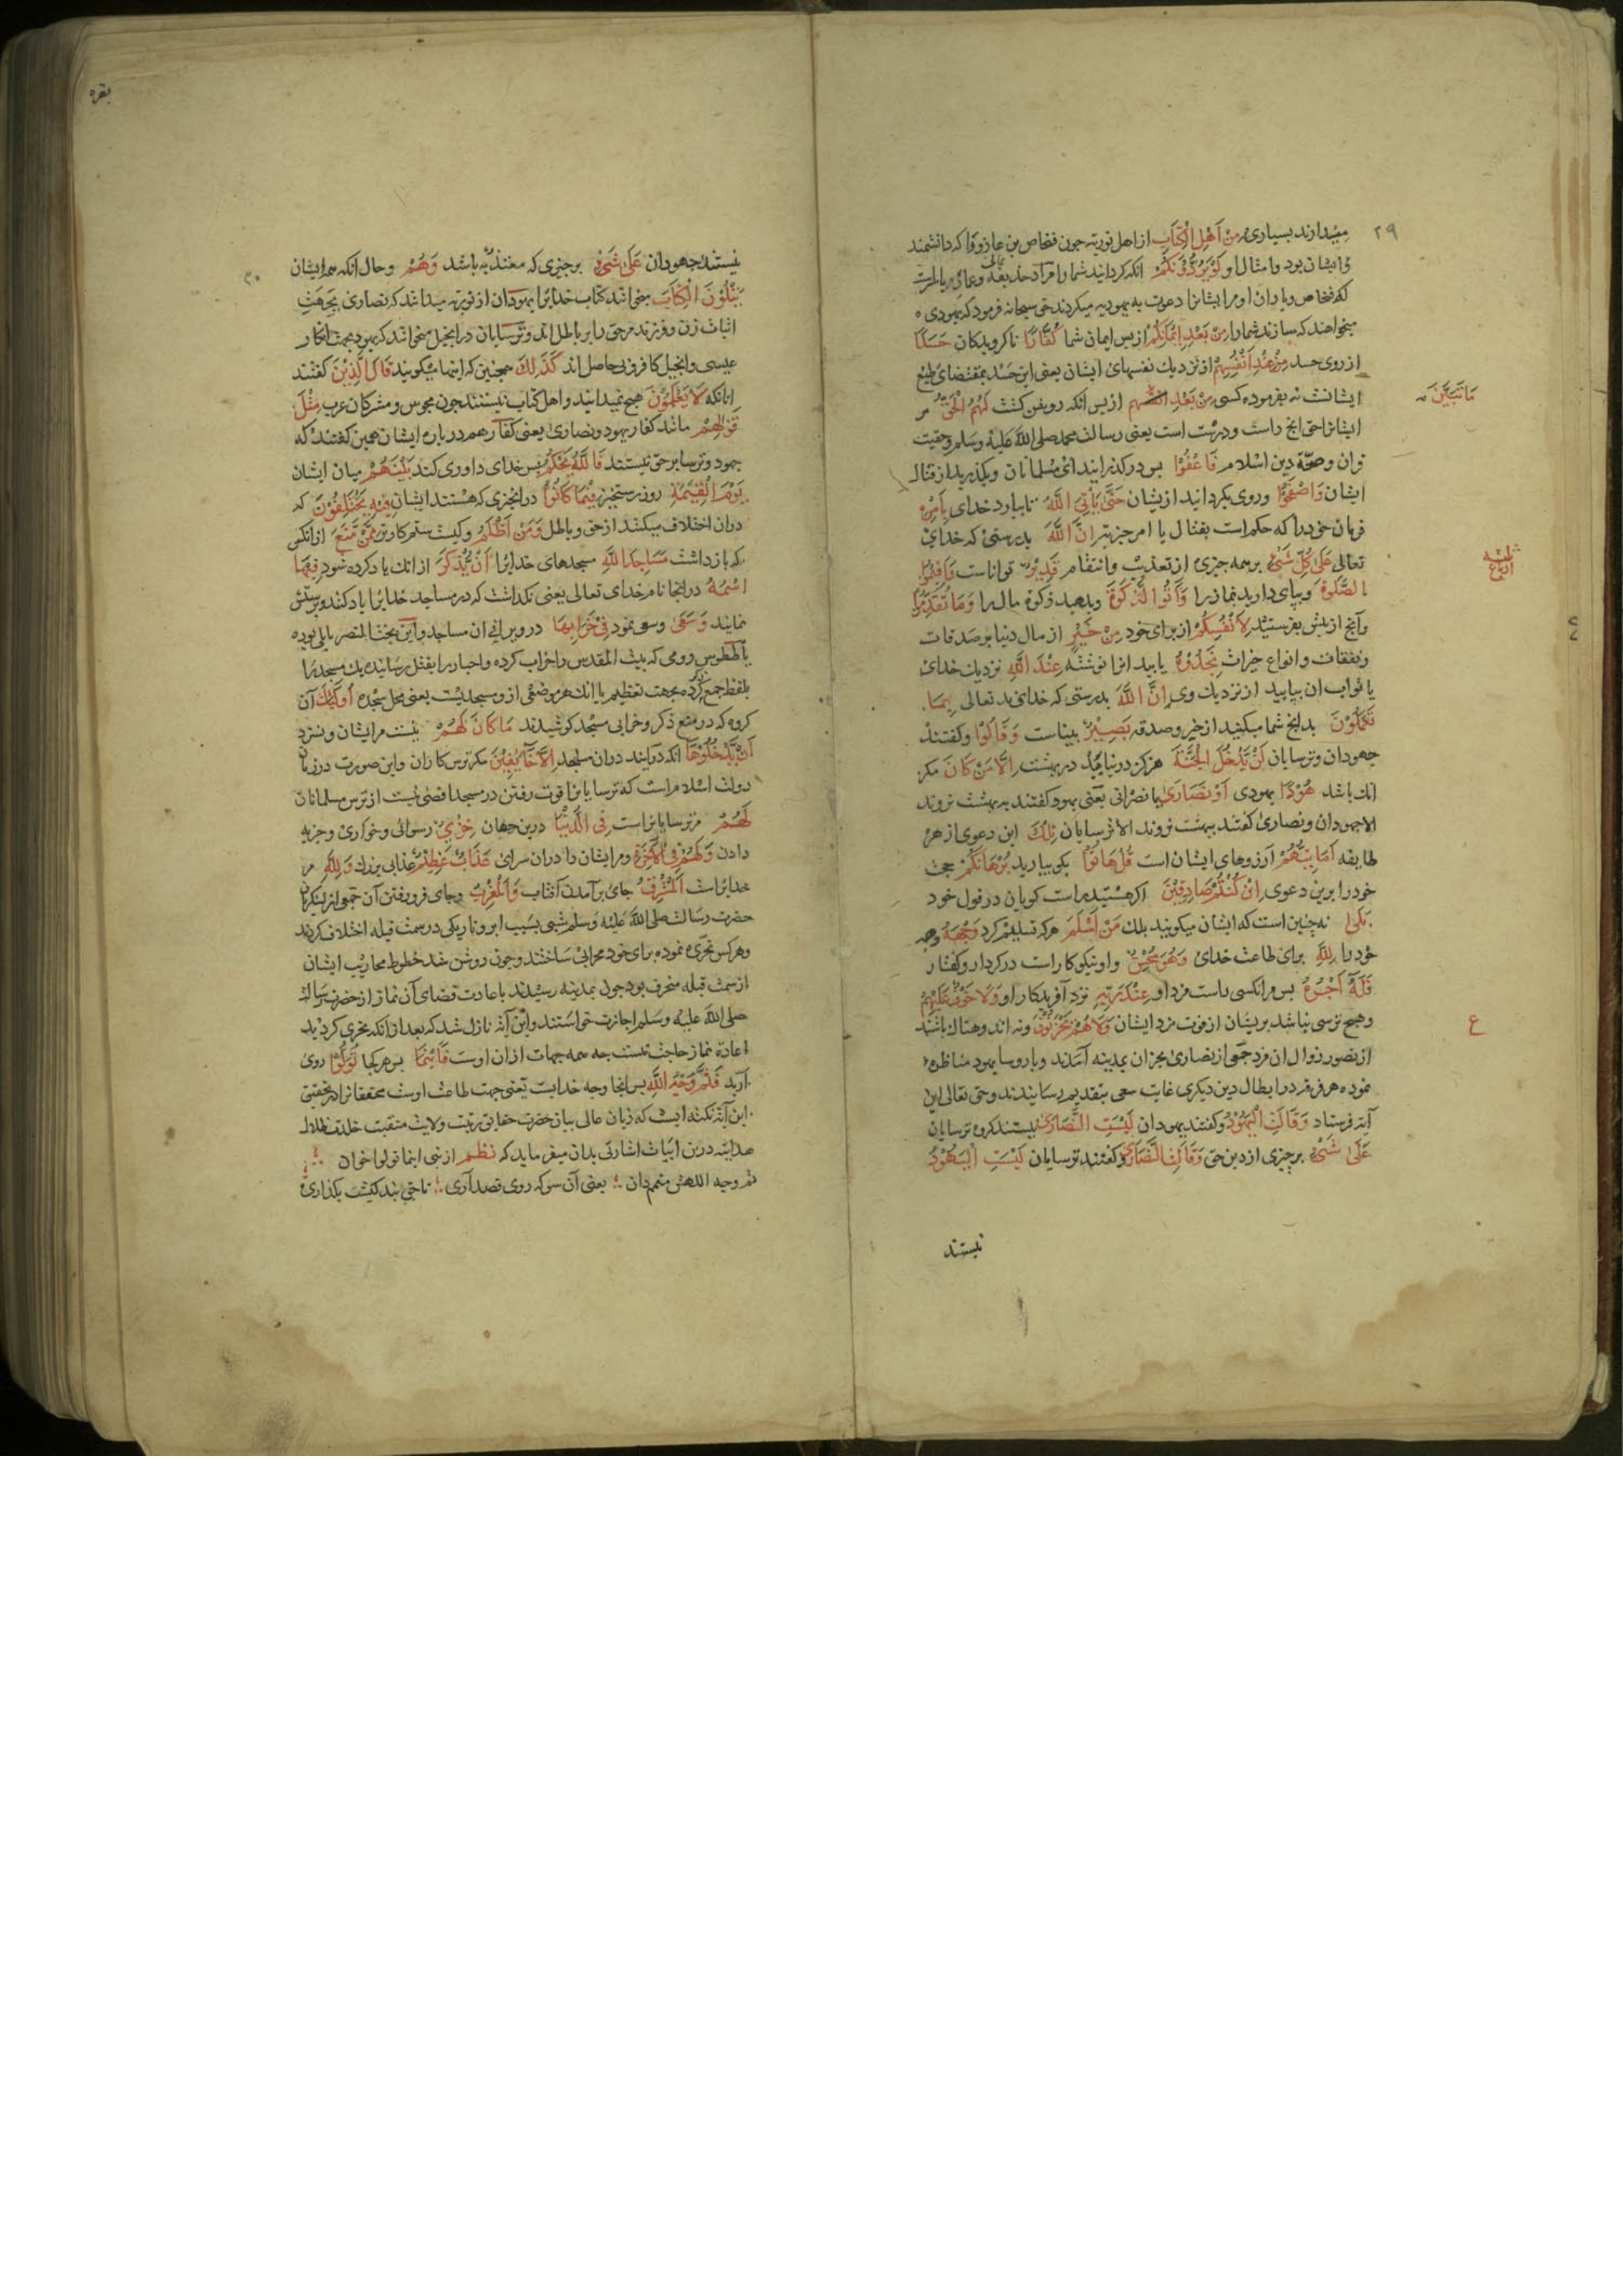 ۲۹
میدارند بسیاری مِنْ اَهْلِ الْکِتَابِ از اهل توریة جون فنحاص بن عازورا که دانشمند
ایشان بود و امثال او لَوْ یَرُدُّوْنَکُمْ انکه کردانید شما را
که فنحاص و یاران او مر ایشانرا دعوت به یهودیه میکردند حق سبحانه فرمود که یهودی
میخواهند که سازند شما را مِنْ بَعْدِ اِیْمَانِکُمْ از پس ایمان شما کُفَّارًا ناکرویدکان حَسَدًا
از روی حسد مِنْ عِنْدِ اَنْفُسِهِمْ از نزدیك نفسهای ایشان یعنی این حسد بمقتضای طبع
ایشانست نه بفرموده کسی مِنْ بَعْدِ از پس انکه روشن کشت لَهُمُ الْحَقُّ مر
مَا تَبَیَّنَ
ایشانرا حق انج راست و درست است یعنی رسالت محمد صلی الله علیه وسلم و حقیت
قران و صحّة دین اسلام فَاعْفُوْا بس درکذرانید ای مسلمانان و بکذرید از قتال
ایشان وَاصْفَحُوْا و روی بکردانید ازیشان حَتّٰی یَاْتِیَ اللّٰهُ تا بیارد خدای بِاَمْرِهٖ
فرمان خود را که حکم است بقتال یا امر جزیه اِنَّ اللّٰهَ بدرستی که خدای
تعالی عَلٰی کُلِّ شَیْءٍ بر همه جیزی از تعذیب و انتقام قَدِیْرٌ تواناست وَاَقِیْمُوا
الصَّلٰوةَ و بپای دارید نماز را وَاٰتُوا الزَّکٰوةَ و بدهید زکوة مال را وَمَا تُقَدِّمُوْا
وآنج از پیش بفرستید لِاَنْفُسِکُمْ از برای خود مِنْ خَیْرٍ از مال دنیا بر صدقات
و نفقات و انواع خیرات تَجِدُوْهُ یابید انرا نوشته عِنْدَ اللّٰهِ نزدیك خدای
یا ثواب ان بیابید از نزدیك وی اِنَّ اللّٰهَ بدرستی که خدای تعالی بِمَا
تَعْمَلُوْنَ بدانج شما میکنید از خیر و صدقه بَصِیْرٌ بیناست وَقَالُوْا و کفتند
جهودان و ترسایان لَنْ یَّدْخُلَ الْجَنَّةَ هرکز درنیاید در بهشت اِلَّا مَنْ کَانَ مکر
انك باشد هُوْدًا یهودی اَوْ نَصَارٰی یا نصرانی یعنی یهود کفتند به بهشت نروند
الا جهودان و نصاری کفتند ببهشت نروند الا ترسایان تِلْكَ این دعوی از هر
طایفه اَمَانِیُّهُمْ آرزوهای ایشان است قُلْ هَاتُوْا بکو بیارید بُرْهَانَکُمْ حجت
خود را برین دعوی اِنْ کُنْتُمْ صَادِقِیْنَ اکر هستید راست کویان در قول خود
بَلٰی نه چنین است که ایشان میکویند بلك مَنْ اَسْلَمَ هرکه تسلیم کرد وَجْهَهٗ وجه
خود را لِلّٰهِ برای طاعت خدای وَهُوَ مُحْسِنٌ و او نیکوکار است در کردار و کفتار
فَلَهٗ اَجْرُهٗ بس مر انکسی راست مزد او عِنْدَ رَبِّهٖ نزد آفریدکار او وَلَا خَوْفٌ عَلَیْهِمْ
و هیج ترسی نباشد بریشان از فوت مزد ایشان وَلَا هُمْ یَحْزَنُوْنَ و نه اندوهناك باشند
ع
از تصور زوال ان مزد جمعی از نصاری نجران بمدینه آمدند و با روسا یهود مناظره
نموده هر فرقه در ابطال دین دیکری غایت سعی بتقدیم رسانیدند و حق تعالی این
آیه فرستاد وَقَالَتِ الْیَهُوْدُ و کفتند یهودان لَیْسَتِ النَّصَارٰی نیستند کروه ترسایان
عَلٰی شَیْءٍ بر چیزی از دین حق وَقَالَتِ النَّصَارٰی و کفتند ترسایان لَیْسَتِ الْیَهُوْدُ
نیستند
بقره
۳۰
نیستند جهودان عَلٰی شَیْءٍ بر جیزی که معتدّ به باشد وَهُمْ و حال انکه همه ایشان
یَتْلُوْنَ الْکِتَابَ میخوانند کتاب خدایرا یهودان از توریة میدانند که نصاری بجهت
اثبات زن و فرزند مر حق را بر باطل اند و ترسایان در انجیل میخوانند که یهود بجهت انکار
عیسی و انجیل کافرند حاصل اند کَذٰلِكَ همجنین که اینها میکویند قَالَ الَّذِیْنَ کفتند
انانکه لَا یَعْلَمُوْنَ هیج نمیدانند و اهل کتاب نیستند جون مجوس و مشرکان عرب مِثْلَ
قَوْلِهِمْ مانند کفتار یهود و نصاری یعنی کفار هم در باره ایشان همین کفتند که
یهود و ترسا بر حق نیستند فَاللّٰهُ یَحْکُمُ بس خدای داوری کند بَیْنَهُمْ میان ایشان
یَوْمَ الْقِیٰمَةِ روز رستخیز فِیْمَا کَانُوْا در انجیزی که هستند ایشان فِیْهِ یَخْتَلِفُوْنَ که
دران اختلاف میکنند از حق و باطل وَمَنْ اَظْلَمُ و کیست ستمکارتر مِمَّنْ مَّنَعَ از انکس
که بازداشت مَسَاجِدَ اللّٰهِ مسجدهای خدایرا اَنْ یُّذْکَرَ از انك یاد کرده شود فِیْهَا
اسْمُهٗ در انجا نام خدای تعالی یعنی نکذاشت که در مساجد خدایرا یاد کنند و پرستش
نمایند وَسَعٰی و سعی نمود فِیْ خَرَابِهَا در ویرانی ان مساجد و این بخت النصر بابلی بوده
یا ططوس رومی که بیت المقدس را خراب کرده و احبار را بقتل رسانیده یك مسجد را
بلفظ جمع کرده بجهت تعظیم یا انك هر موضعی ازو مسجدیست یعنی محل سجده اُولٰئِكَ آن
کروه که در منع ذکر و خرابی مسجد کوشیدند مَا کَانَ لَهُمْ نیست مر ایشان و نسزد
اَنْ یَّدْخُلُوْهَا انکه درآیند دران مساجد اِلَّا خَآئِفِیْنَ مکر ترسکاران و این صورت در زمان
دولت اسلام است که ترسایانرا قوت رفتن در مسجد اقصی نیست از ترس مسلمانان
لَهُمْ مر ترسایانراست فِی الدُّنْیَا درین جهان خِزْیٌ رسوائی و خواری و جزیه
دادن وَلَهُمْ فِی الْاٰخِرَةِ و مر ایشان را دران سرای عَذَابٌ عَظِیْمٌ عذابی بزرك وَلِلّٰهِ مر
خدایراست الْمَشْرِقُ جای برآمدن آفتاب وَالْمَغْرِبُ و جای فرو رفتن آن جمعی از لشکریان
حضرت رسالت صلی الله علیه وسلم شبی بسبب ابر و تاریکی در سمت قبله اختلاف کردند
و هرکس تحرّی نموده برای خود محرابی ساختند و جون روشن شد خطوط محاریب ایشان
از سمت قبله منحرف بود جون بمدینه رسیدند با عادت قضای آن نماز از حضرت رسالت
صلی الله علیه وسلم اجازت خواستند و این آیه نازل شد که بعد از انکه تحری کردید
اعاده نماز حاجت نیست جه همه جهات از ان اوست فَاَیْنَمَا بس هر کجا تُوَلُّوْا روی
آرید فَثَمَّ وَجْهُ اللّٰهِ بس انجا وجه خدایست یعنی جهت طاعت اوست محققانرا در تحقیق
این آیة نکته ایست که زبان عالی بیان حضرت حقایق مرتبت ولایت منقبت خلدت ظلال
هدایته درین ابیات اشارتی بدان میفرماید که نظم از نبی اینما تولوا خوان
ثم وجه الله متمم دان یعنی آن سو که روی قصد آری تا حق بندکیش بکذاری